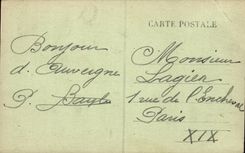 CARTE POSTALE
Bonjour
d'Auvergne
P.
Monsieur
Lagier
1 rue de l'
Paris
XIX